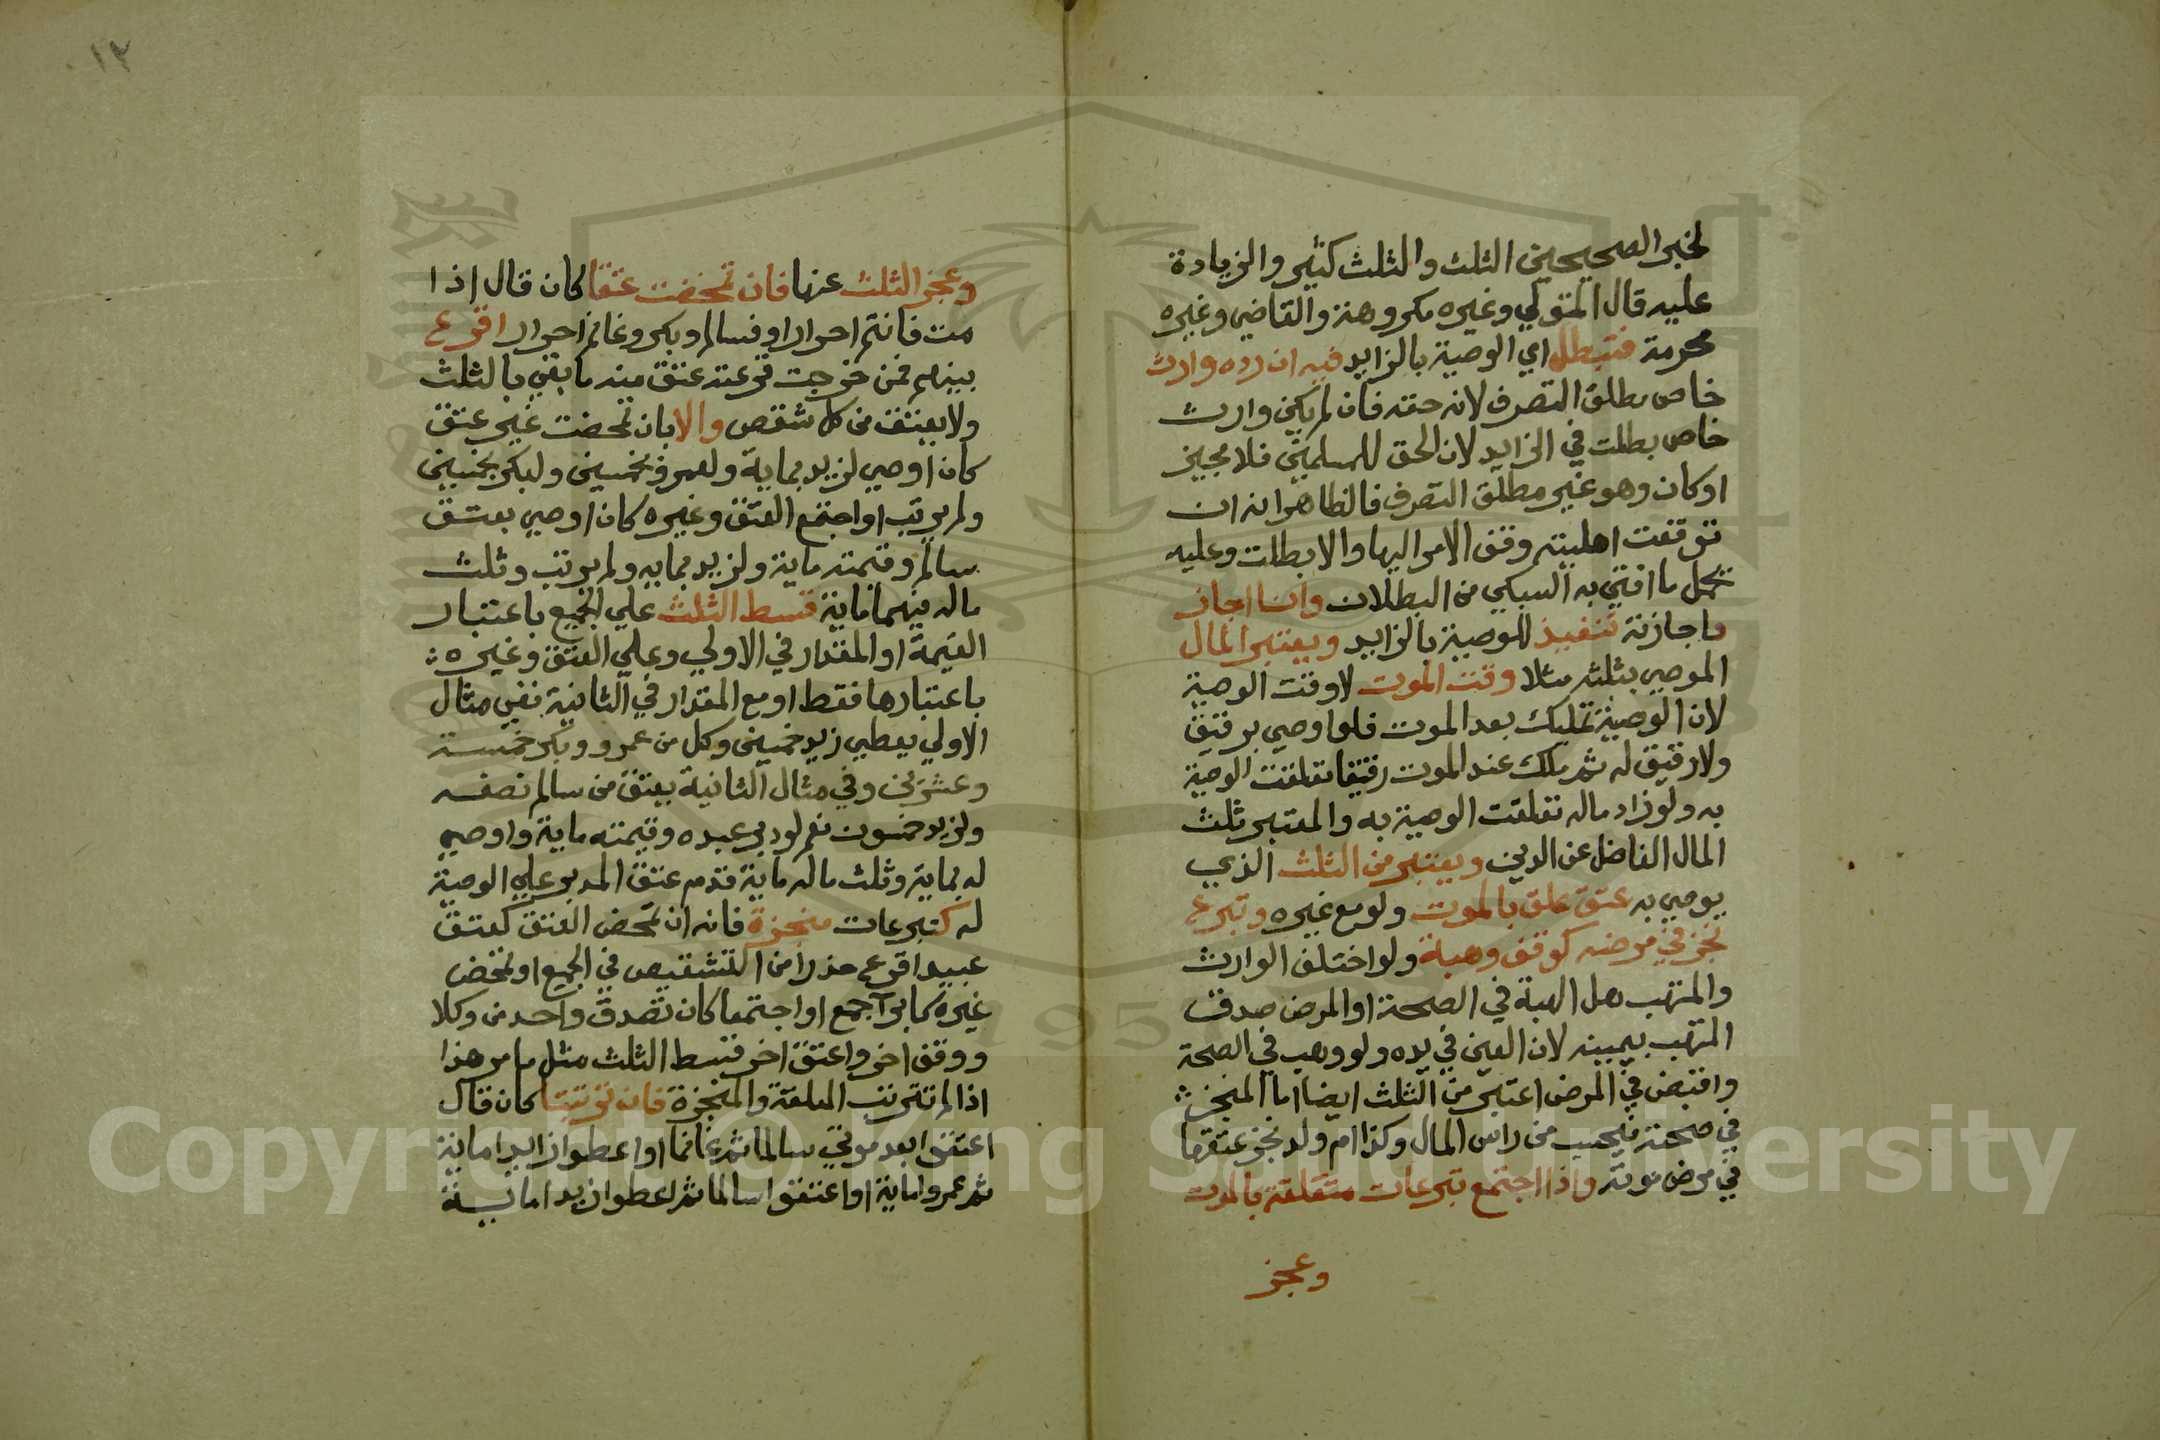 لخبر الصحيحين الثلث والثلث كثير والزيادة
عليه قال المتولي وغيره مكروهة والقاضي وغيره
محرمة فتبطل اي الوصية بالزايد فيه ان رده وارث
خاص مطلق التصرف لانه حقه فان لم يكن وارث
خاص بطلت في الزايد لان الحق للمسلمين فلا مجيز
او كان وهو غير مطلق التصرف فالظاهر انه ان
توقفت اهليته وقف الامر اليها والا بطلت وعليه
يحمل ما افتي به السبكي من البطلان وان اجاز
فاجازته تنفيذ للوصية بالزايد ويعتبر المال
الموصي بثلثه مثلا وقت الموت لا وقت الوصية
لان الوصية تمليك بعد الموت فلو اوصي برقيق
ولا رقيق له ثم ملك عند الموت رقيقا تعلقت الوصية
به ولو زاد ماله تعلقت الوصية به والمعتبر ثلث
المال الفاضل عن الدين ويعتبر من الثلث الذي
يوصي به عتق علق بالموت ولو مع غيره وتبرع
نجز في مرضه كوقف وهبة ولو اختلف الوارث
والمتهب هل الهبة في الصحة او المرض صدق
المتهب بيمينه لان العين في يده ولو وهب في الصحة
واقبض في المرض اعتبر من الثلث ايضا اما المنجز
في صحته فيحسب من راس المال وكذا ام ولد نجز عتقها
في مرض موته واذا اجتمع تبرعات متعلقة بالموت
وعجز
١٢
وعجز الثلث عنها فان تمحضت عتقا كان قال اذا
مت فانتم احرار او فسالم وبكر وغانم احرار اقرع
بينهم فمن خرجت قرعته عتق منه ما يفي بالثلث
ولا يعتق من كل شقص والا بان تمحضت غير عتق
كان اوصي لزيد بماية ولعمرو بخمسين ولبكر بخمسين
ولم يرتب او اجتمع العتق وغيره كان اوصي بعتق
سالم وقيمته ماية ولزيد بمايه ولم يرتب وثلث
ماله فيهما ماية قسط الثلث علي الجميع باعتبار
القيمة او المقدار في الاولي وعلي العتق وغيره
باعتبارها فقط او مع المقدار في الثانية ففي مثال
الاولي يعطي زيد خمسين وكل من عمرو وبكر خمسة
وعشرين وفي مثال الثانية يعتق من سالم نصفه
ولزيد خمسون نعم لو دبر عبده وقيمته ماية واوصي
له بماية وثلث ماله ماية قدم عتق المدبر علي الوصية
له كتبرعات منجزة فانه ان تمحض العتق كعتق
عبيد اقرع حذرا من التشقيص في الجميع او تمحض
غيره كابرا جمع او اجتمعا كان تصدق واحد من وكلا
ووقف اخر واعتق اخر قسط الثلث مثل ما مر هذا
اذا لم تترتب المعلقة والمنجزة فان ترتبتا كان قال
اعتقوا بعد موتي سالما ثم غانما او اعطوا زايدا ماية
ثم عمروا ماية او اعتقوا سالما ثم اعطوا زيدا ماية